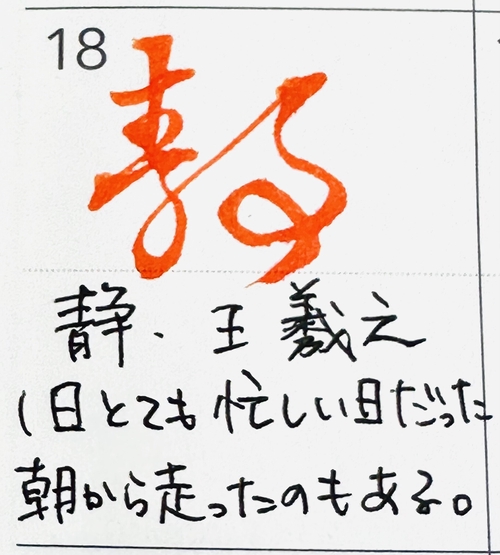 18
静
静、王羲之
1日とても忙しい日だった
朝から走ったのもある。